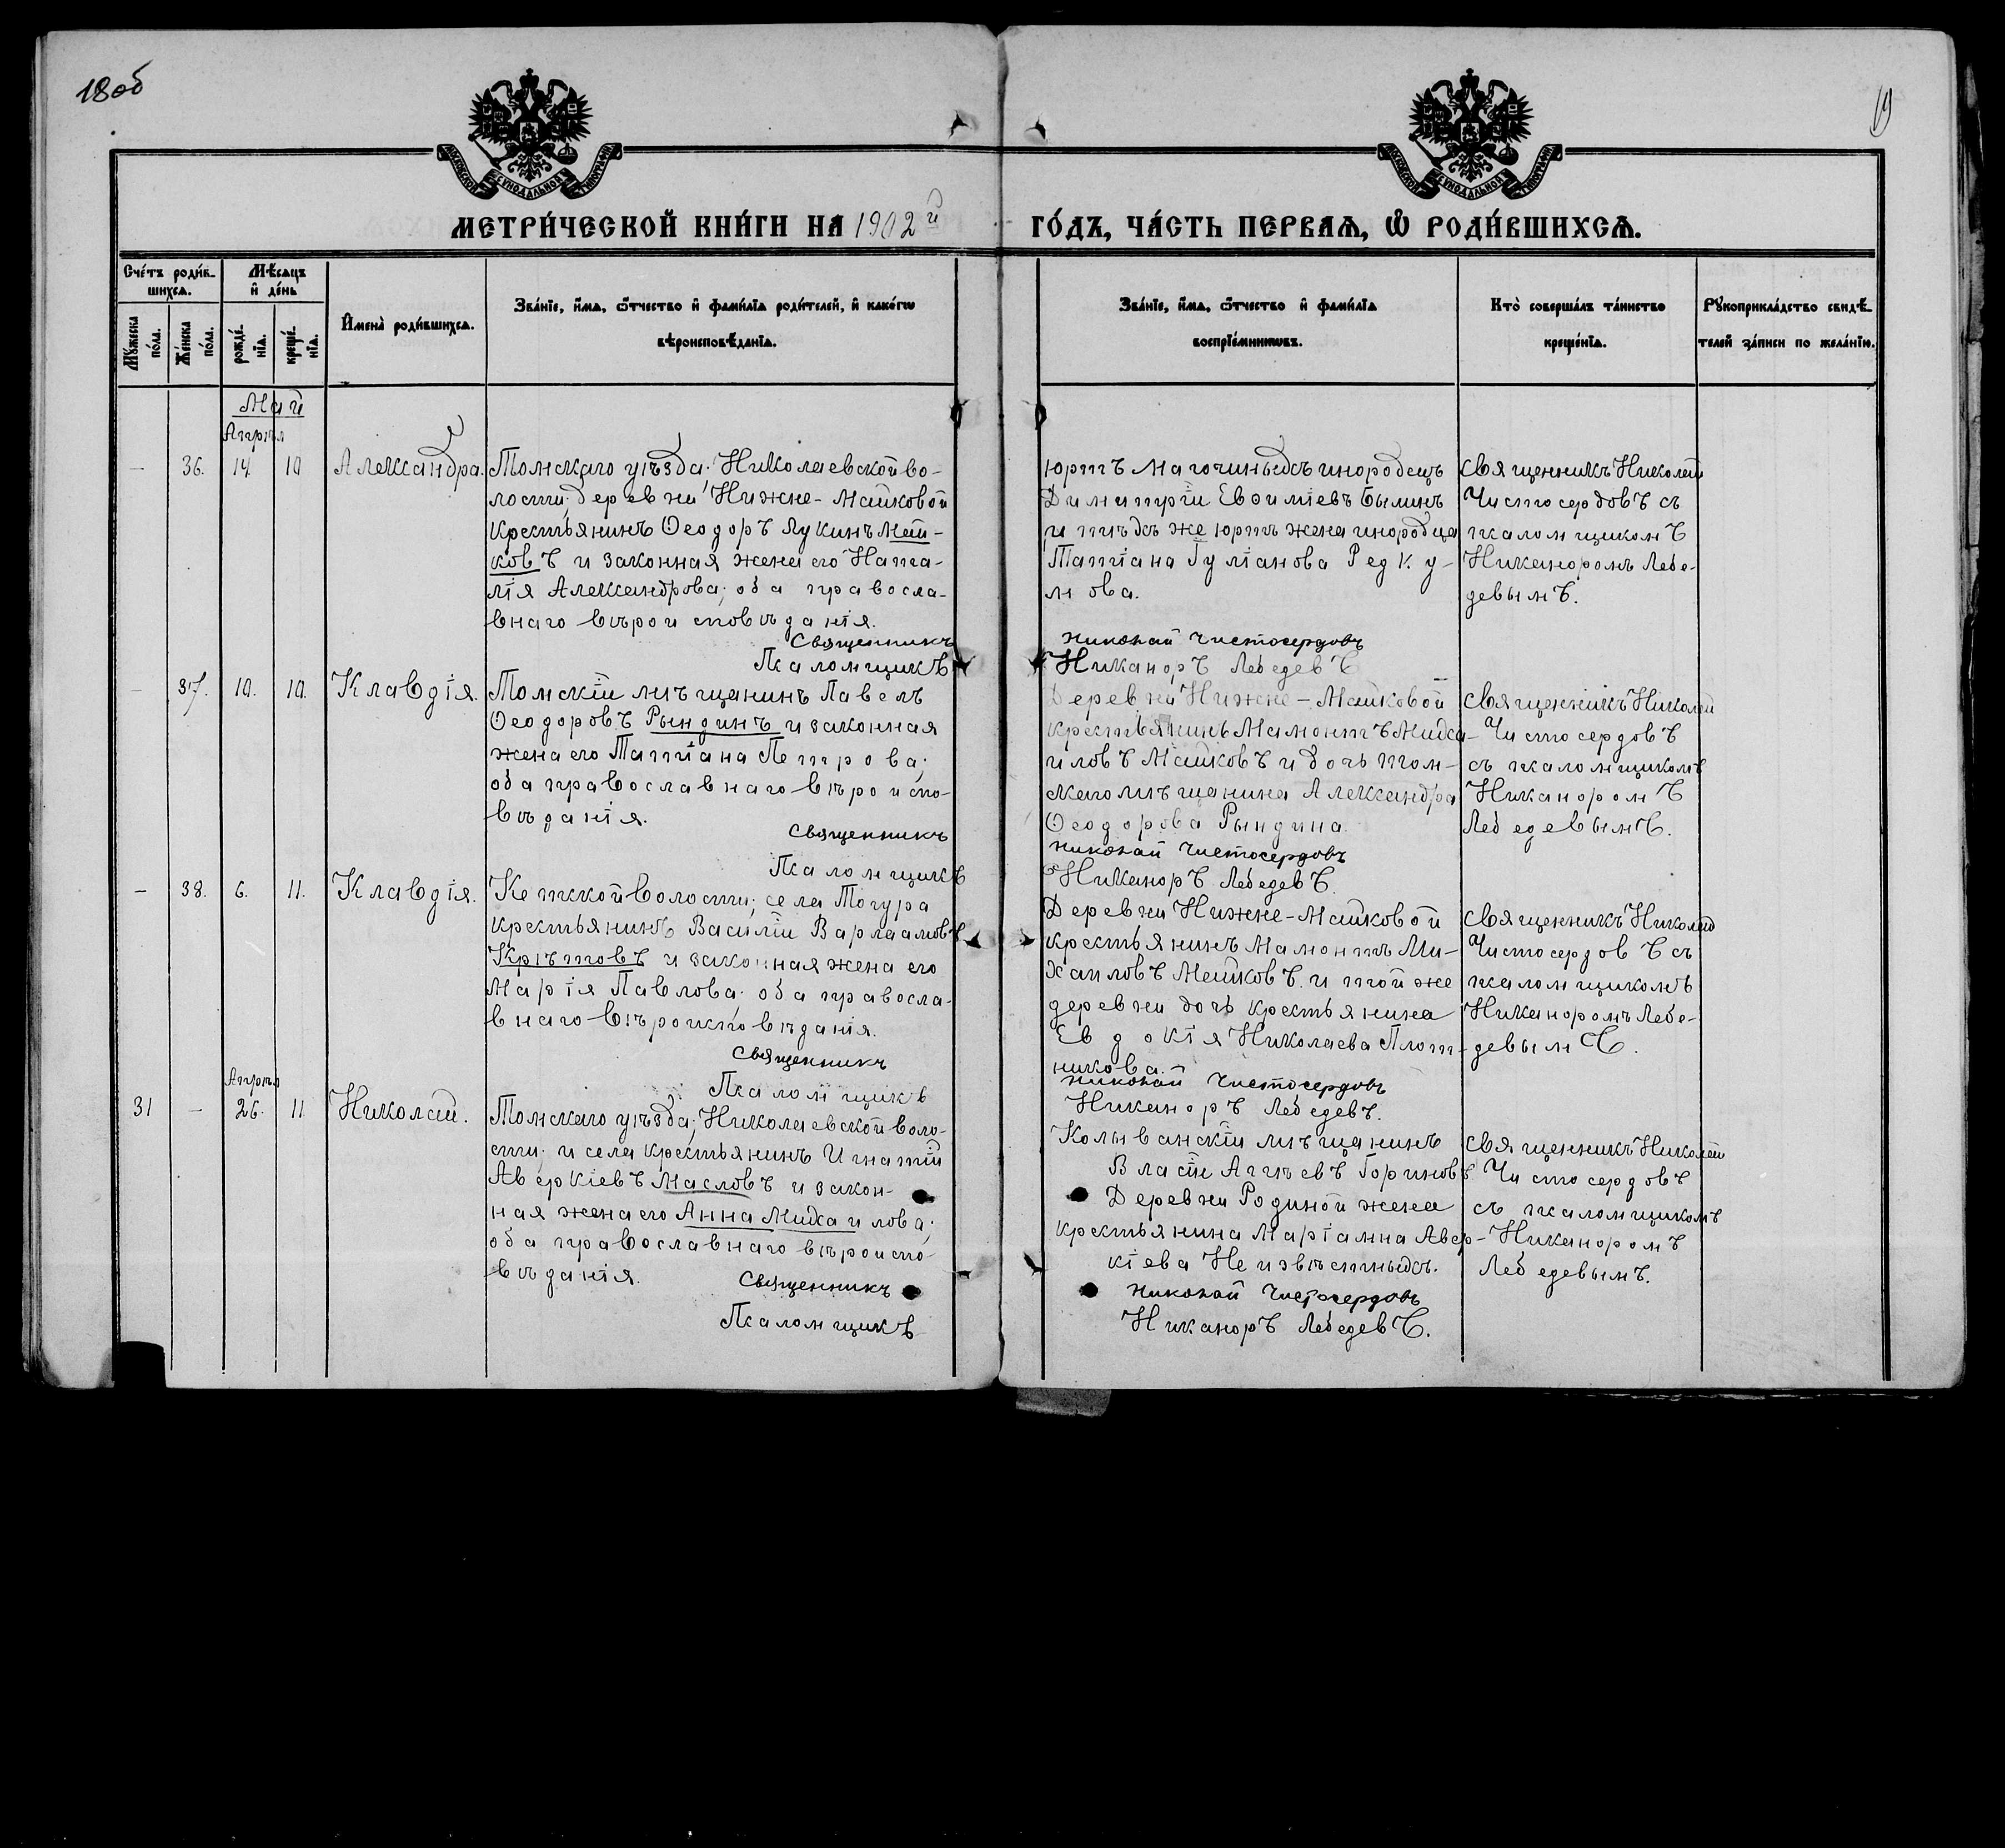 18 об
19
МОСКОВСКОЙ СѴНОДАЛЬНОЙ ТИПОГРАФІИ
МОСКОВСКОЙ СѴНОДАЛЬНОЙ ТИПОГРАФІИ
МЕТРИ́ЧЕСКОЙ КНИ́ГИ НА 1902й
ГО́ДЪ, ЧА́СТЬ ПЕРВАѦ, Ѡ РОДИ́ВШИХСѦ.
Сче́тъ роди́в-
шихсѧ.
Мѣсѧцъ
и де́нь
Мꙋжеска
по́ла.
Женска
по́ла.
рожде́-
нїѧ.
креще́-
нїѧ.
Имена̀ роди́вшихсѧ.
Зва́нїе, и́мѧ, ѻ҆́тчество и фами́лїѧ роди́телей, и како́гѡ
вѣроисповѣ́данїѧ.
Зва́нїе, и́мѧ, ѻ҆́тчество и фами́лїѧ
воспрїе́мникѡвъ.
Кто̀ соверша́лъ та́инство
креще́нїѧ.
Рꙋкоприкла́дство свидѣ́-
телей за́писи по жела́нїю.
Май
Апрѣл
— 36. 14 10 Александра.
Томскаго уѣзда, Николаевской во-
лости, деревни Нижне-Майковой
крестьянинъ Ѳеодоръ Лукинъ Май-
ковъ и законная жена его Ната-
лія Александрова; оба правосла-
внаго вѣроисповѣданія.
Священникъ
Псаломщикъ
юртъ Магочиныхъ инородецъ
Димитрій Евѳиміевъ Былинъ
и тѣхъ же юртъ жена инородца
Татіана Гуліанова Редку-
мова.
Николай Чистосердовъ
Никаноръ Лебедевъ
священникъ Николай
Чистосердовъ съ
псаломщикомъ
Никаноромъ Лебе-
девымъ.
— 37. 10. 10. Клавдія.
Томскій мѣщанинъ Павелъ
Ѳеодоровъ Рындинъ и законная
жена его Татіана Петрова;
оба православнаго вѣроиспо-
вѣданія.
Священникъ
Псаломщикъ
Деревни Нижне-Майковой
крестьянинъ Мамонтъ Миха-
иловъ Майковъ и дочь том-
скаго мѣщанина Александра
Ѳеодорова Рындина.
Николай Чистосердовъ
Никаноръ Лебедевъ.
священникъ Николай
Чистосердовъ
съ псаломщикомъ
Никаноромъ
Лебедевымъ.
— 38. 6. 11. Клавдія.
Кетской волости, села Тогура
крестьянинъ Василій Варлаамовъ
Крѣтовъ и законная жена его
Марія Павлова; оба правосла-
внаго вѣроисповѣданія.
Священникъ
Псаломщикъ
Деревни Нижне-Майковой
крестьянинъ Мамонтъ Ми-
хаиловъ Майковъ и той же
деревни дочь крестьянина
Евдокія Николаева Плот-
никова.
Николай Чистосердовъ
Никаноръ Лебедевъ.
священникъ Николай
Чистосердовъ съ
псаломщикомъ
Никаноромъ Лебе-
девымъ.
Апрѣл
31 — 26. 11 Николай.
Томскаго уѣзда, Николаевской воло-
сти, и села крестьянинъ Игнатій
Аверкіевъ Масловъ и закон-
ная жена его Анна Михаилова;
оба православнаго вѣроиспо-
вѣданія.
Священникъ
Псаломщикъ
Колыванскій мѣщанинъ
Власій Аггѣевъ Гориновъ
Деревни Родиной жена
крестьянина Маріамна Авер-
кіева Неизвѣстныхъ.
Николай Чистосердовъ
Никаноръ Лебедевъ.
священникъ Николай
Чистосердовъ
съ псаломщикомъ
Никаноромъ
Лебедевымъ.